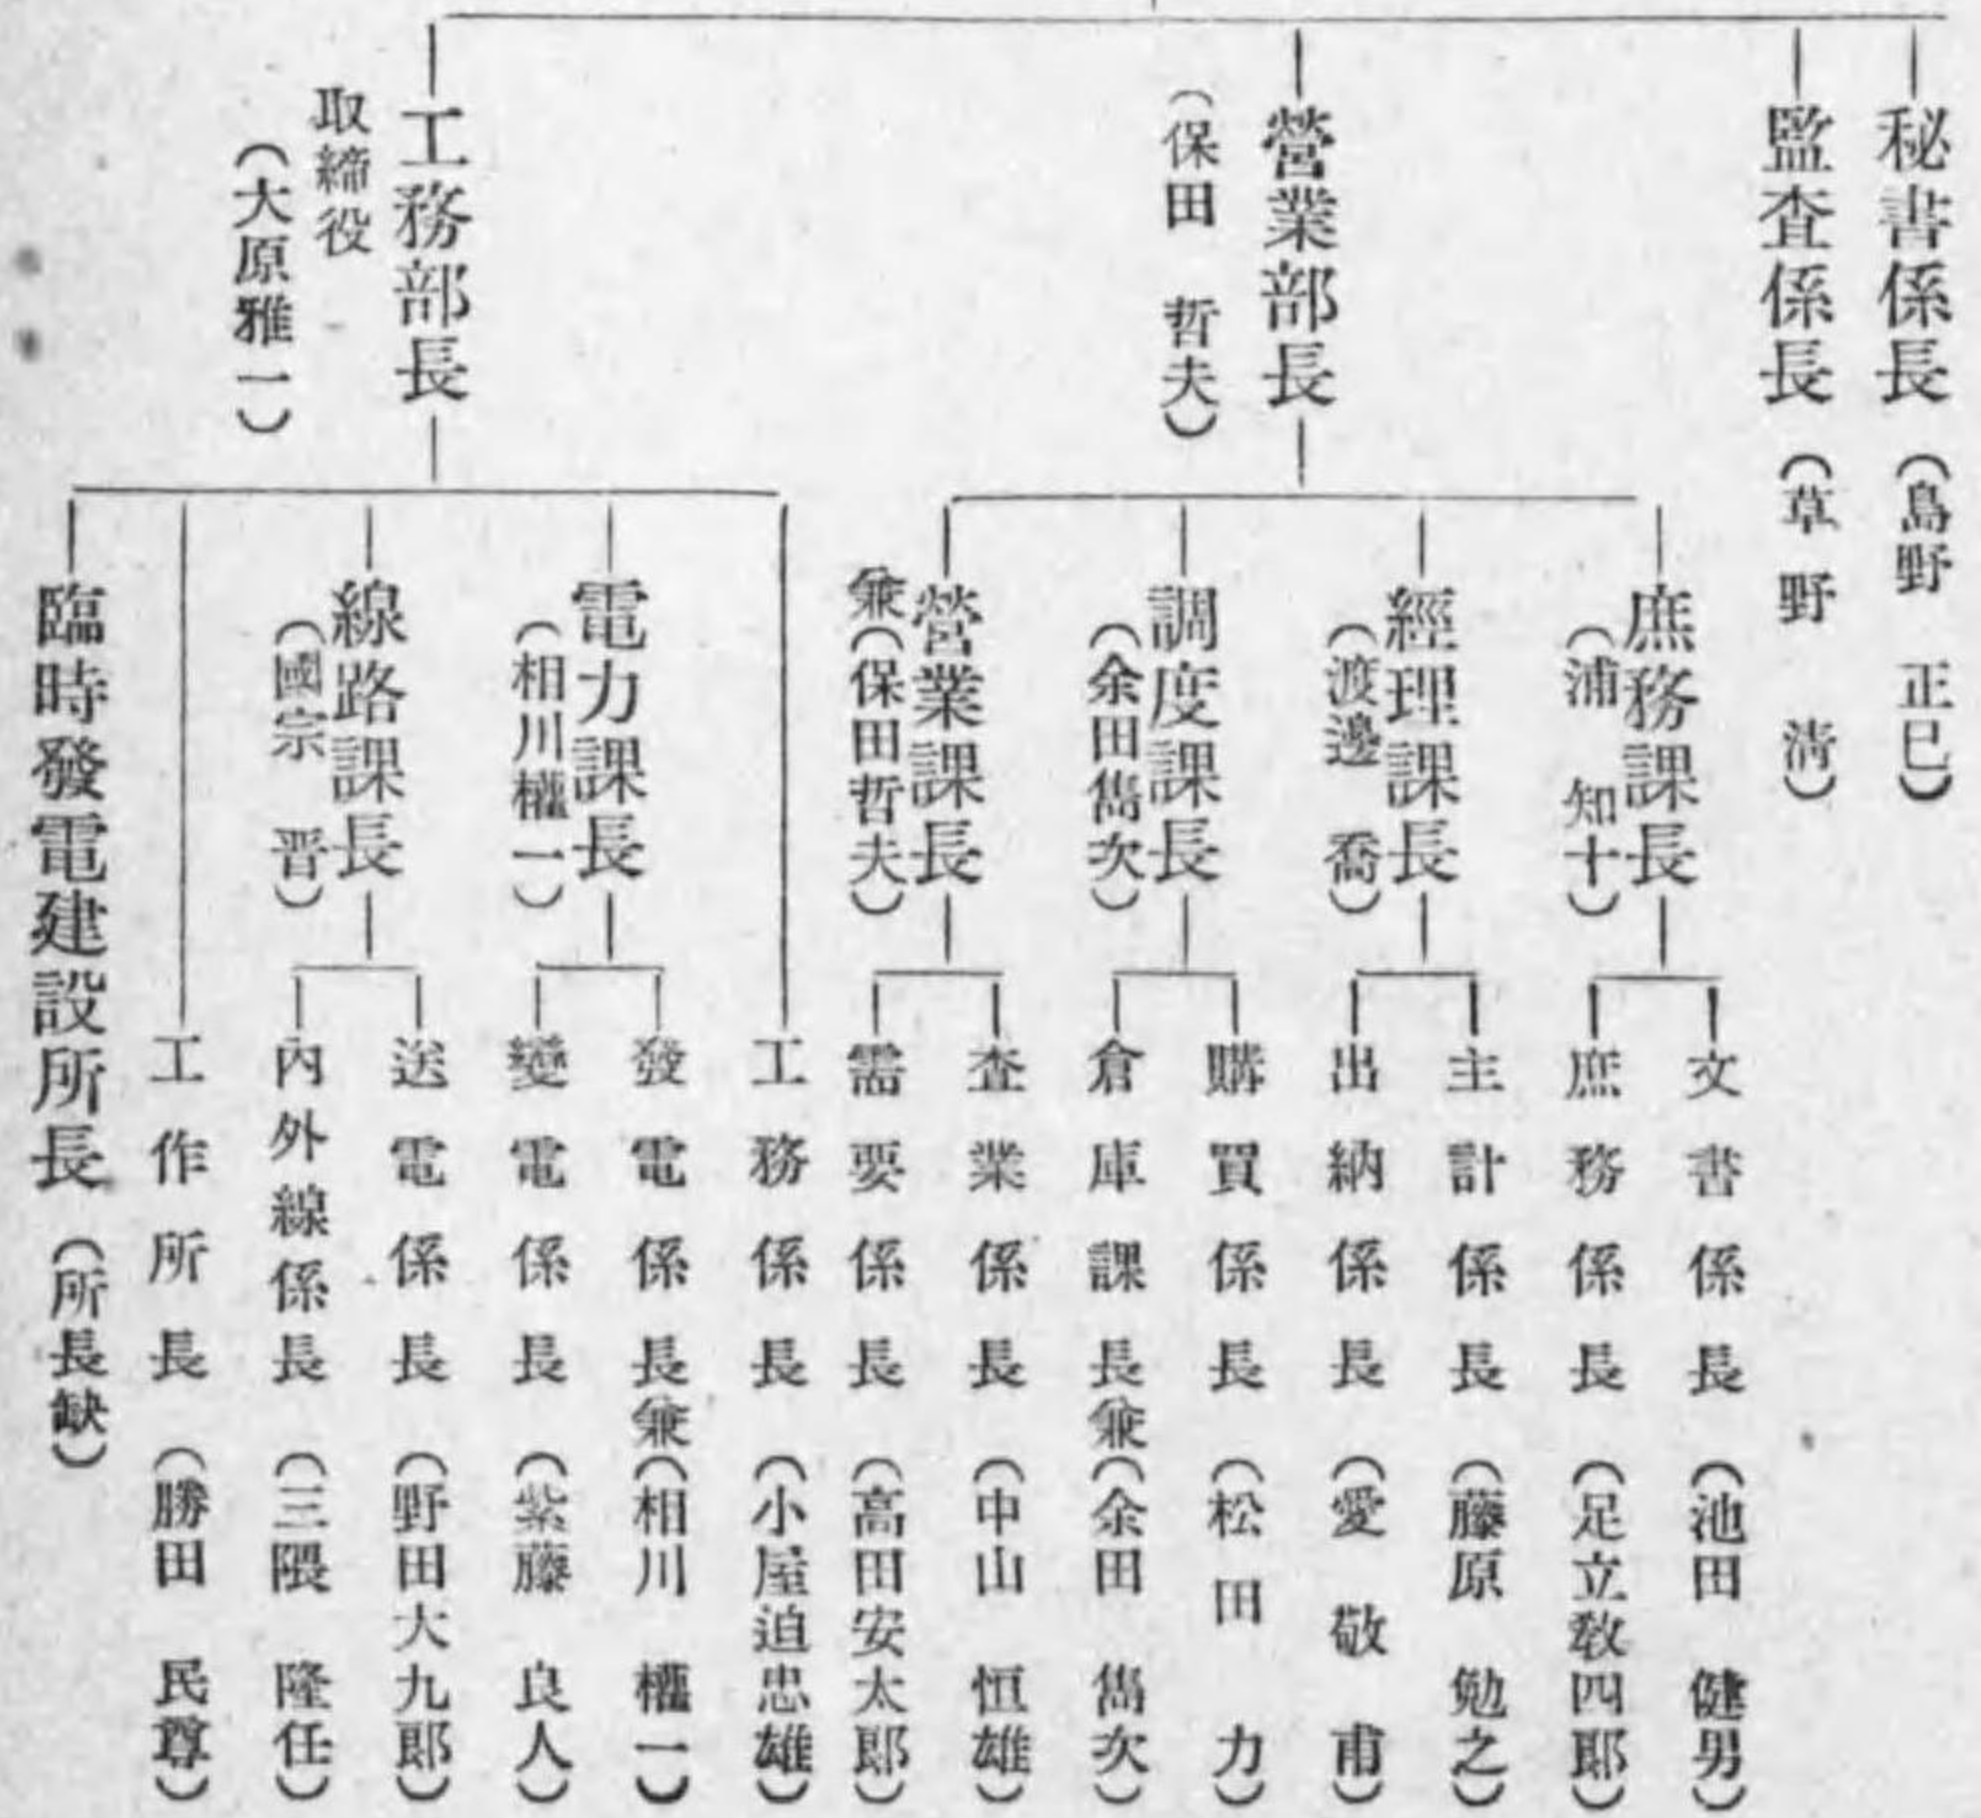 秘書係長(島野正巳)
監査係長(草野淸)
營業部長
(保田哲夫)
庶務課長
(浦知十)
文書係長(池田健男)
庶務係長(足立敎四郞)
經理課長
(渡邊喬)
主計係長(藤原勉之)
出納係長(愛敬甫)
調度課長
(余田雋次)
購買係長(松田力)
倉庫課長兼(余田雋次)
營業課長
兼(保田哲夫)
査業係長(中山恒雄)
需要係長(高田安太郞)
工務部長
取締役
(大原雅一)
工務係長(小屋迫忠雄)
電力課長
(相川權一)
發電係長兼(相川權一)
變電係長(紫藤良人)
線路課長
(國宗晋)
送電係長(野田大九郞)
內外線係長(三隈隆任)
工作所長(勝田民尊)
臨時發電建設所長(所長缺)